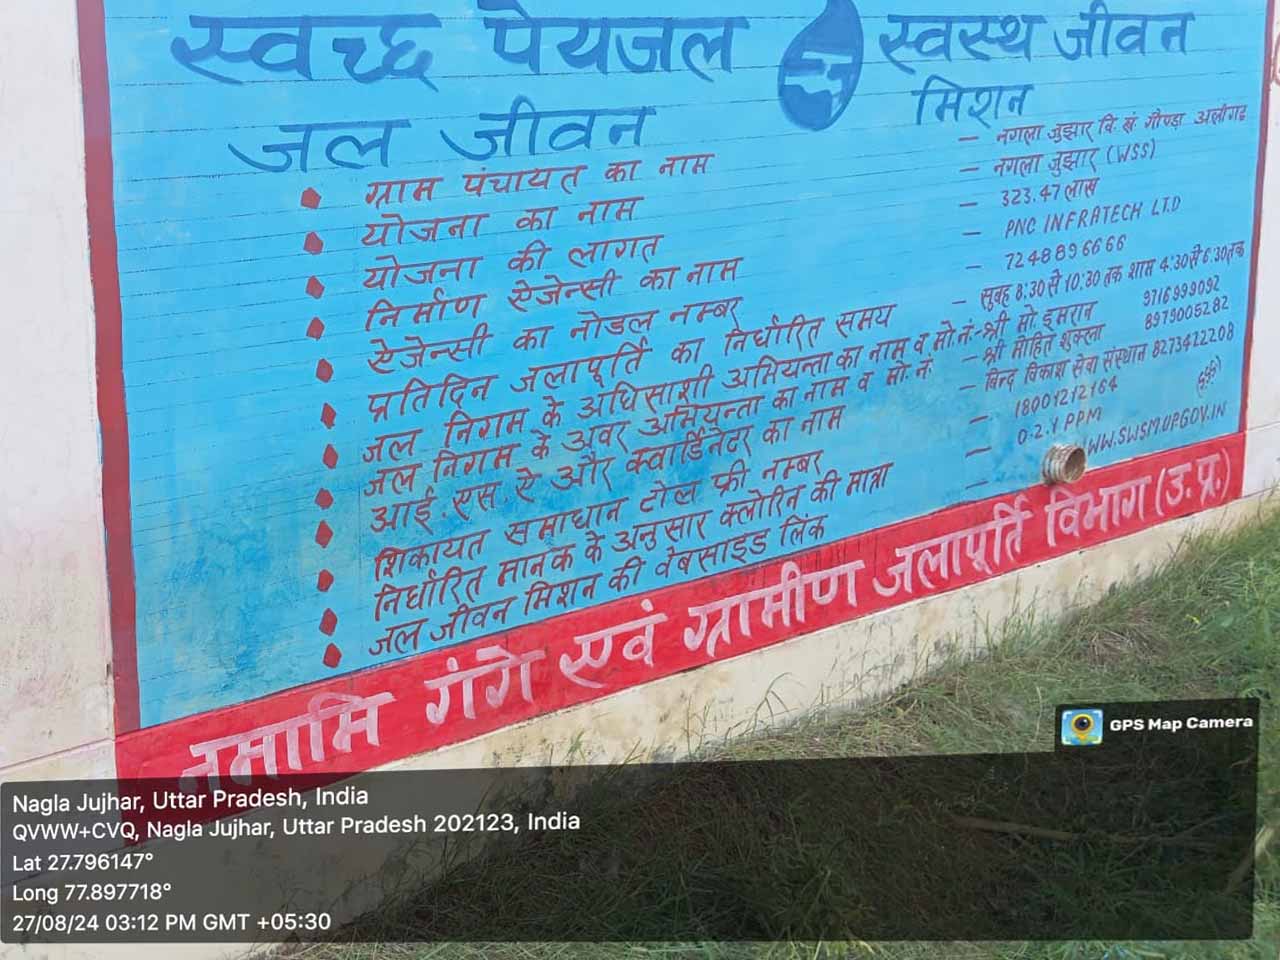 स्वच्छ पेयजल स्वस्थ जीवन
जल जीवन मिशन
ग्राम पंचायत का नाम – नगला जुझार वि. खं. गौण्डा अलीगढ़
योजना का नाम – नगला जुझार (WSS)
योजना की लागत – 323.47 लाख
निर्माण ऐजेन्सी का नाम – PNC INFRATECH LTD
ऐजेन्सी का नोडल नम्बर – 7248896666
प्रतिदिन जलापूर्ति का निर्धारित समय – सुबह 8:30 से 10:30 तक शाम 4:30 से 6:30 तक
जल निगम के अधिसाशी अभियन्ता का नाम व मो. नं. – श्री मो. इमरान 9716999092
जल निगम के अवर अभियन्ता का नाम व मो. नं. – श्री मोहित शुक्ला 8979005282
आई. एस. ऐ और क्वार्डिनेटर का नाम – बिन्द विकाश सेवा संस्थान 8273422208
शिकायत समाधान टोल फ्री नम्बर – 18001212164
निर्धारित मानक के अनुसार क्लोरिन की मात्रा – 0.2.1 PPM
जल जीवन मिशन की वेबसाइड लिंक – WW.SWSM.UP.GOV.IN
नमामि गंगे एवं ग्रामीण जलापूर्ति विभाग (उ. प्र.)
GPS Map Camera
Nagla Jujhar, Uttar Pradesh, India
QVWW+CVQ, Nagla Jujhar, Uttar Pradesh 202123, India
Lat 27.796147°
Long 77.897718°
27/08/24 03:12 PM GMT +05:30